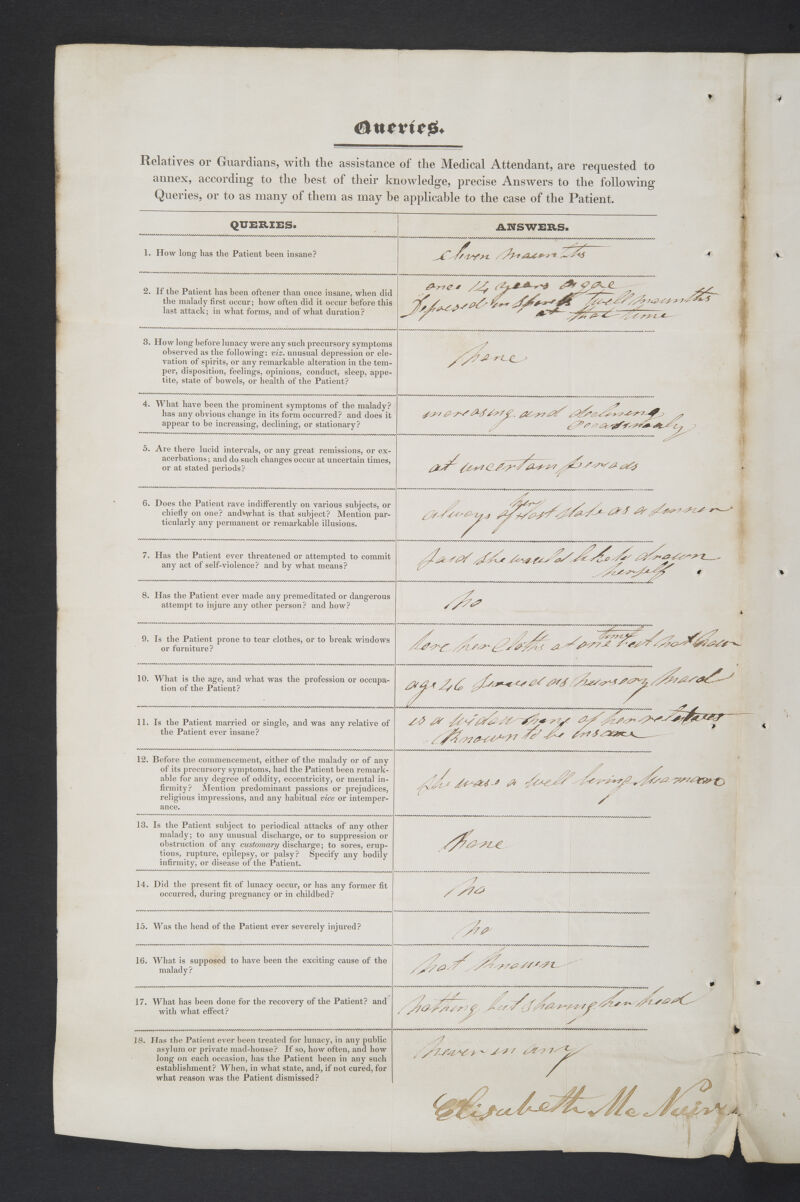 Queries.
Relatives or Guardians, with the assistance of the Medical Attendant, are requested to
annex, according to the best of their knowledge, precise Answers to the following
Queries, or to as many of them as may be applicable to the case of the Patient.
QUERIES.
ANSWERS.
1. How long has the Patient been insane?
eleven mounths
2. If the Patient has been oftener than once insane, when did
the malady first occur; how often did it occur before this
last attack; in what forms, and of what duration?
once 14 years agoe
in twell mounths
at that time
3. How long before lunacy were any such precursory symptoms
observed as the following: viz. unusual depression or ele-
vation of spirits, or any remarkable alteration in the tem-
per, disposition, feelings, opinions, conduct, sleep, appe-
tite, state of bowels, or health of the Patient?
None
4. What have been the prominent symptoms of the malady?
has any obvious change in its form occurred? and does it
appear to be increasing, declining, or stationary?
increasing and declining
5. Are there lucid intervals, or any great remissions, or ex-
acerbations; and do such changes occur at uncertain times,
or at stated periods?
at uncertain periods
6. Does the Patient rave indifferently on various subjects, or
chiefly on one? and what is that subject? Mention par-
ticularly any permanent or remarkable illusions.
always of her lost state as a sinner
7. Has the Patient ever threatened or attempted to commit
any act of self-violence? and by what means?
said she would like to drown
herself
8. Has the Patient ever made any premeditated or dangerous
attempt to injure any other person? and how?
No
9. Is the Patient prone to tear clothes, or to break windows
or furniture?
tore her cloths at one time but not now
10. What is the age, and what was the profession or occupa-
tion of the Patient?
age 46 served as Nursery Maid
11. Is the Patient married or single, and was any relative of
the Patient ever insane?
is a widow none of her relatives
known to be insane
12. Before the commencement, either of the malady or of any
of its precursory symptoms, had the Patient been remark-
able for any degree of oddity, eccentricity, or mental in-
firmity? Mention predominant passions or prejudices,
religious impressions, and any habitual vice or intemper-
ance.
she was a well living woman
13. Is the Patient subject to periodical attacks of any other
malady; to any unusual discharge, or to suppression or
obstruction of any customary discharge; to sores, erup-
tions, rupture, epilepsy, or palsy? Specify any bodily
infirmity, or disease of the Patient.
None
14. Did the present fit of lunacy occur, or has any former fit
occurred, during pregnancy or in childbed?
No
15. Was the head of the Patient ever severely injured?
No
16. What is supposed to have been the exciting cause of the
malady?
Not Known
17. What has been done for the recovery of the Patient? and
with what effect?
Nothing but shaving her head
18. Has the Patient ever been treated for lunacy, in any public
asylum or private mad-house? If so, how often, and how
long on each occasion, has the Patient been in any such
establishment? When, in what state, and, if not cured, for
what reason was the Patient dismissed?
Never in any
Elisabeth Mc